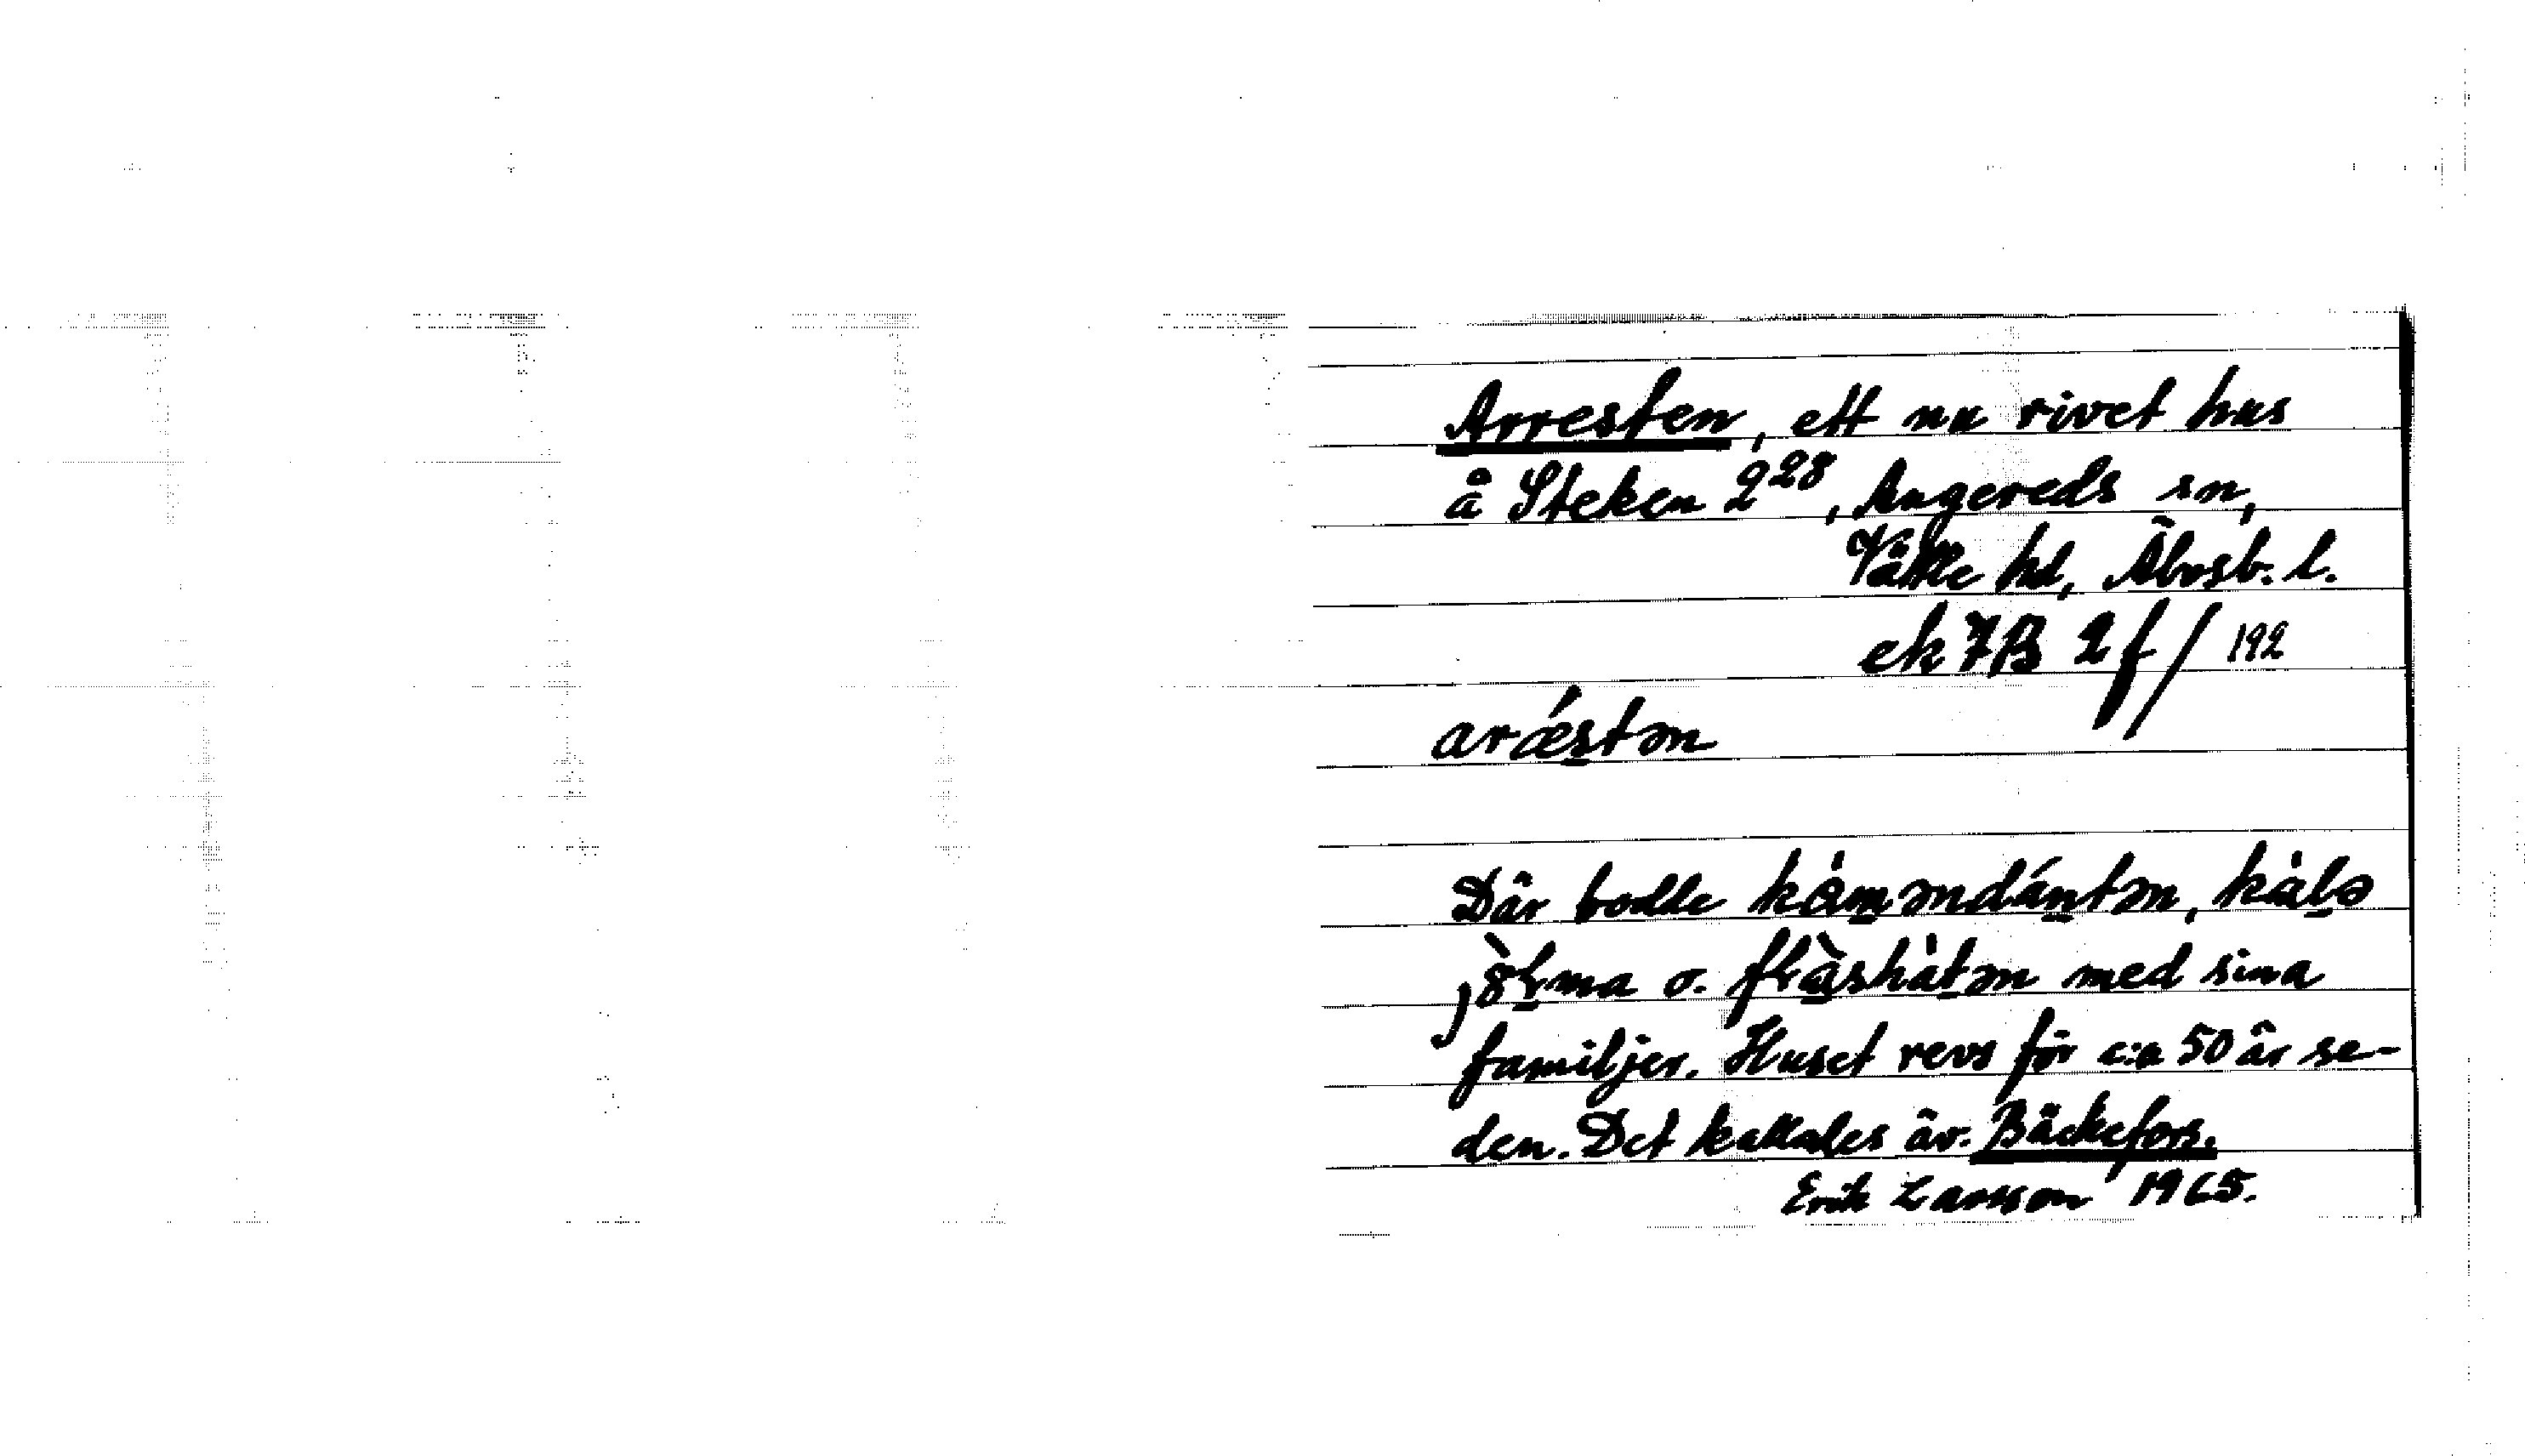 Arresten, ett nu rivet hus
å Steken 2²⁸, Angereds sn,
Vättle hd, Älvsb. l.
ek 7B 2f/192
aræ̂stən
Där bodde kåməndántən, kàlə
o. med sina
familjer. Huset revs för c:a 50 år se-
den. Det kallades äv. Bäckefors.
Erik Larsson 1965.